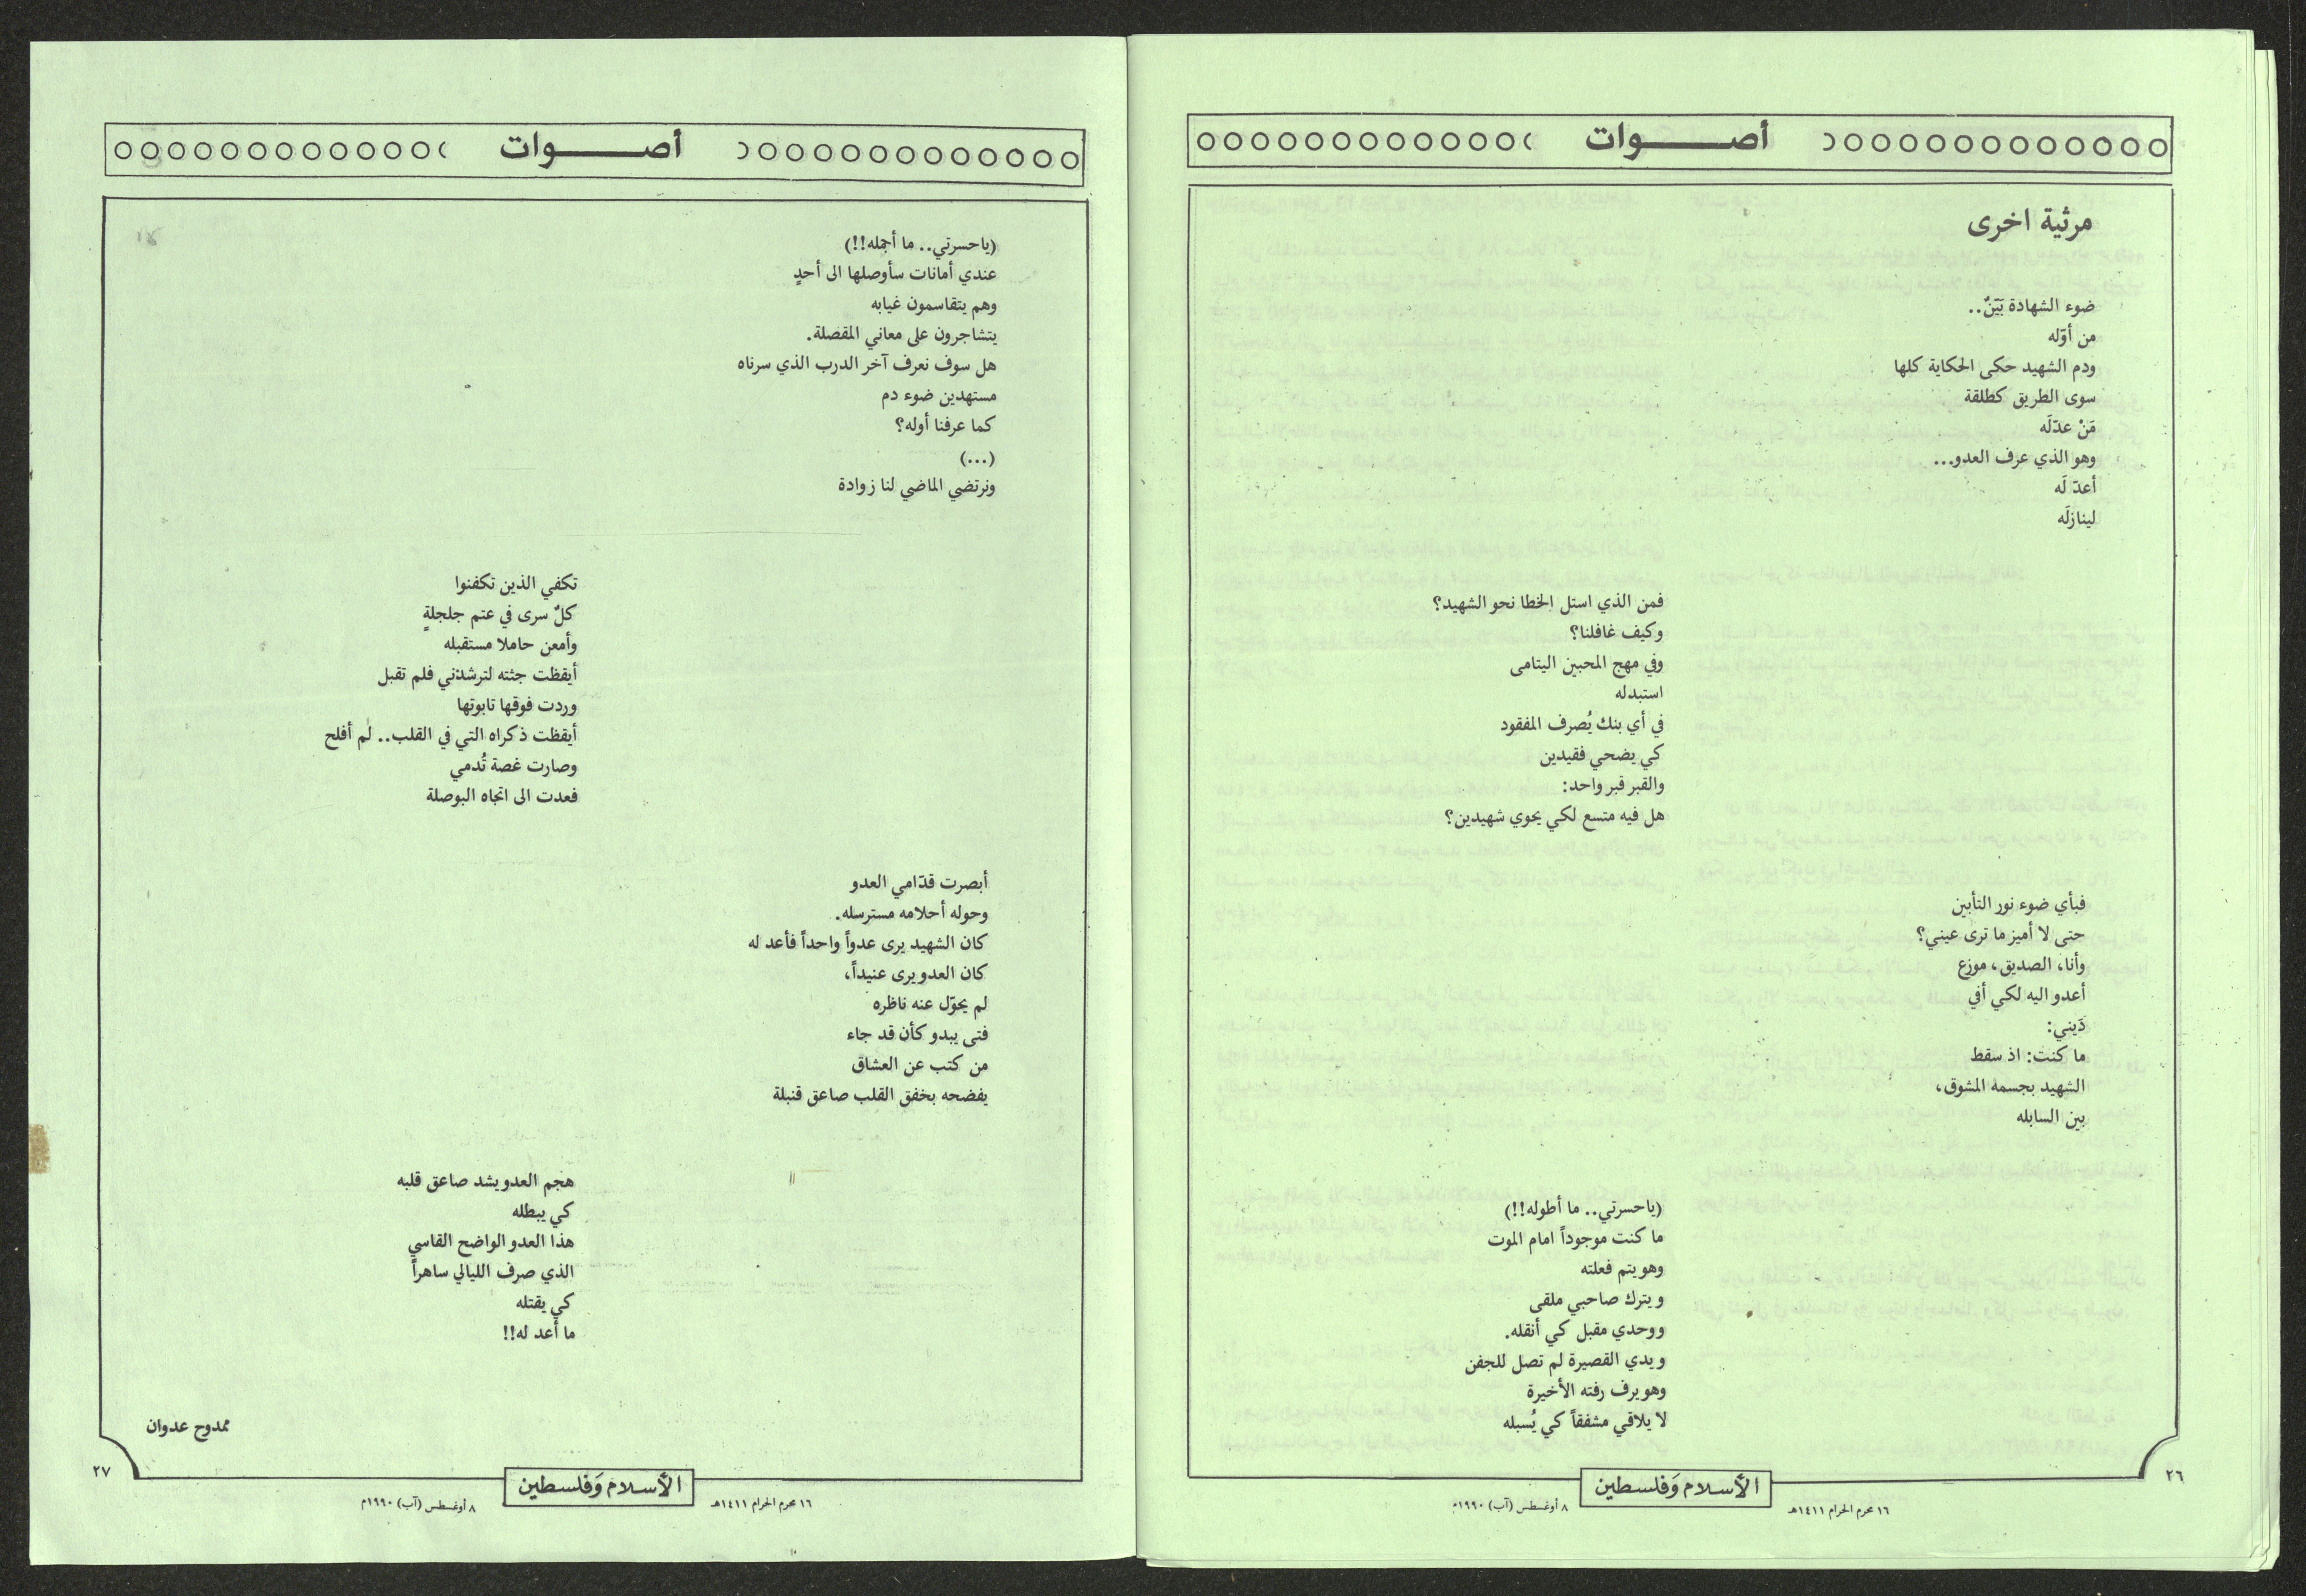 أصـــــوات
مرثية اخرى
ضوء الشهادة بَيّنٌ..
من أوّله
ودم الشهيد حكى الحكاية كلها
سوى الطريق كطلقة
مَنْ عدّلَه
وهو الذي عرف العدو...
أعدّ لَه
لينازلَه
فمن الذي استل الخطا نحو الشهيد؟
وكيف غافلنا؟
وفي مهج المحبين اليتامى
استبدله
في أي بنك يُصرف المفقود
كي يضحي فقيدين
والقبر قبر واحد:
هل فيه متسع لكي يحوي شهيدين؟
فبأي ضوء نور التأبين
حتى لا أميز ما ترى عيني؟
وأنا، الصديق، موزع
أعدو اليه لكي أفي
دَيني:
ما كنت: اذ سقط
الشهيد بجسمه المشوق،
بين السابله
(ياحسرتي.. ما أطوله!!)
ما كنت موجوداً امام الموت
وهو يتم فعلته
ويترك صاحبي ملقى
ووحدي مقبل كي أنقله.
ويدي القصيرة لم تصل للجفن
وهو يرف رفته الأخيرة
لا يلاقي مشفقاً كي يُسبله
٢٦
الأسلام وَفلسطين
١٦ محرم الحرام ١٤١١هـ
٨ أوغسطس (آب) ١٩٩٠م
أصـــــوات
(ياحسرتي.. ما أجمله!!)
عندي أمانات سأوصلها الى أحدٍ
وهم يتقاسمون غيابه
يتشاجرون على معاني المقصلة.
هل سوف نعرف آخر الدرب الذي سرناه
مستهدين ضوء دم
كما عرفنا أوله؟
(...)
ونرتضي الماضي لنا زوادة
تكفي الذين تكفنوا
كلٌ سرى في عتم جلجلةٍ
وأمعن حاملا مستقبله
أيقظت جثته لترشدني فلم تقبل
وردت فوقها تابوتها
أيقظت ذكراه التي في القلب.. لم أفلح
وصارت غصة تُدمي
فعدت الى اتجاه البوصلة
أبصرت قدّامي العدو
وحوله أحلامه مسترسله.
كان الشهيد يرى عدواً واحداً فأعد له
كان العدو يرى عنيداً،
لم يحوّل عنه ناظره
فتى يبدو كأن قد جاء
من كتب عن العشاق
يفضحه بخفق القلب صاعق قنبلة
هجم العدو يشد صاعق قلبه
كي يبطله
هذا العدو الواضح القاسي
الذي صرف الليالي ساهراً
كي يقتله
ما أعد له!!
ممدوح عدوان
٢٧
الأسلام وَفلسطين
١٦ محرم الحرام ١٤١١هـ
٨ أوغسطس (آب) ١٩٩٠م